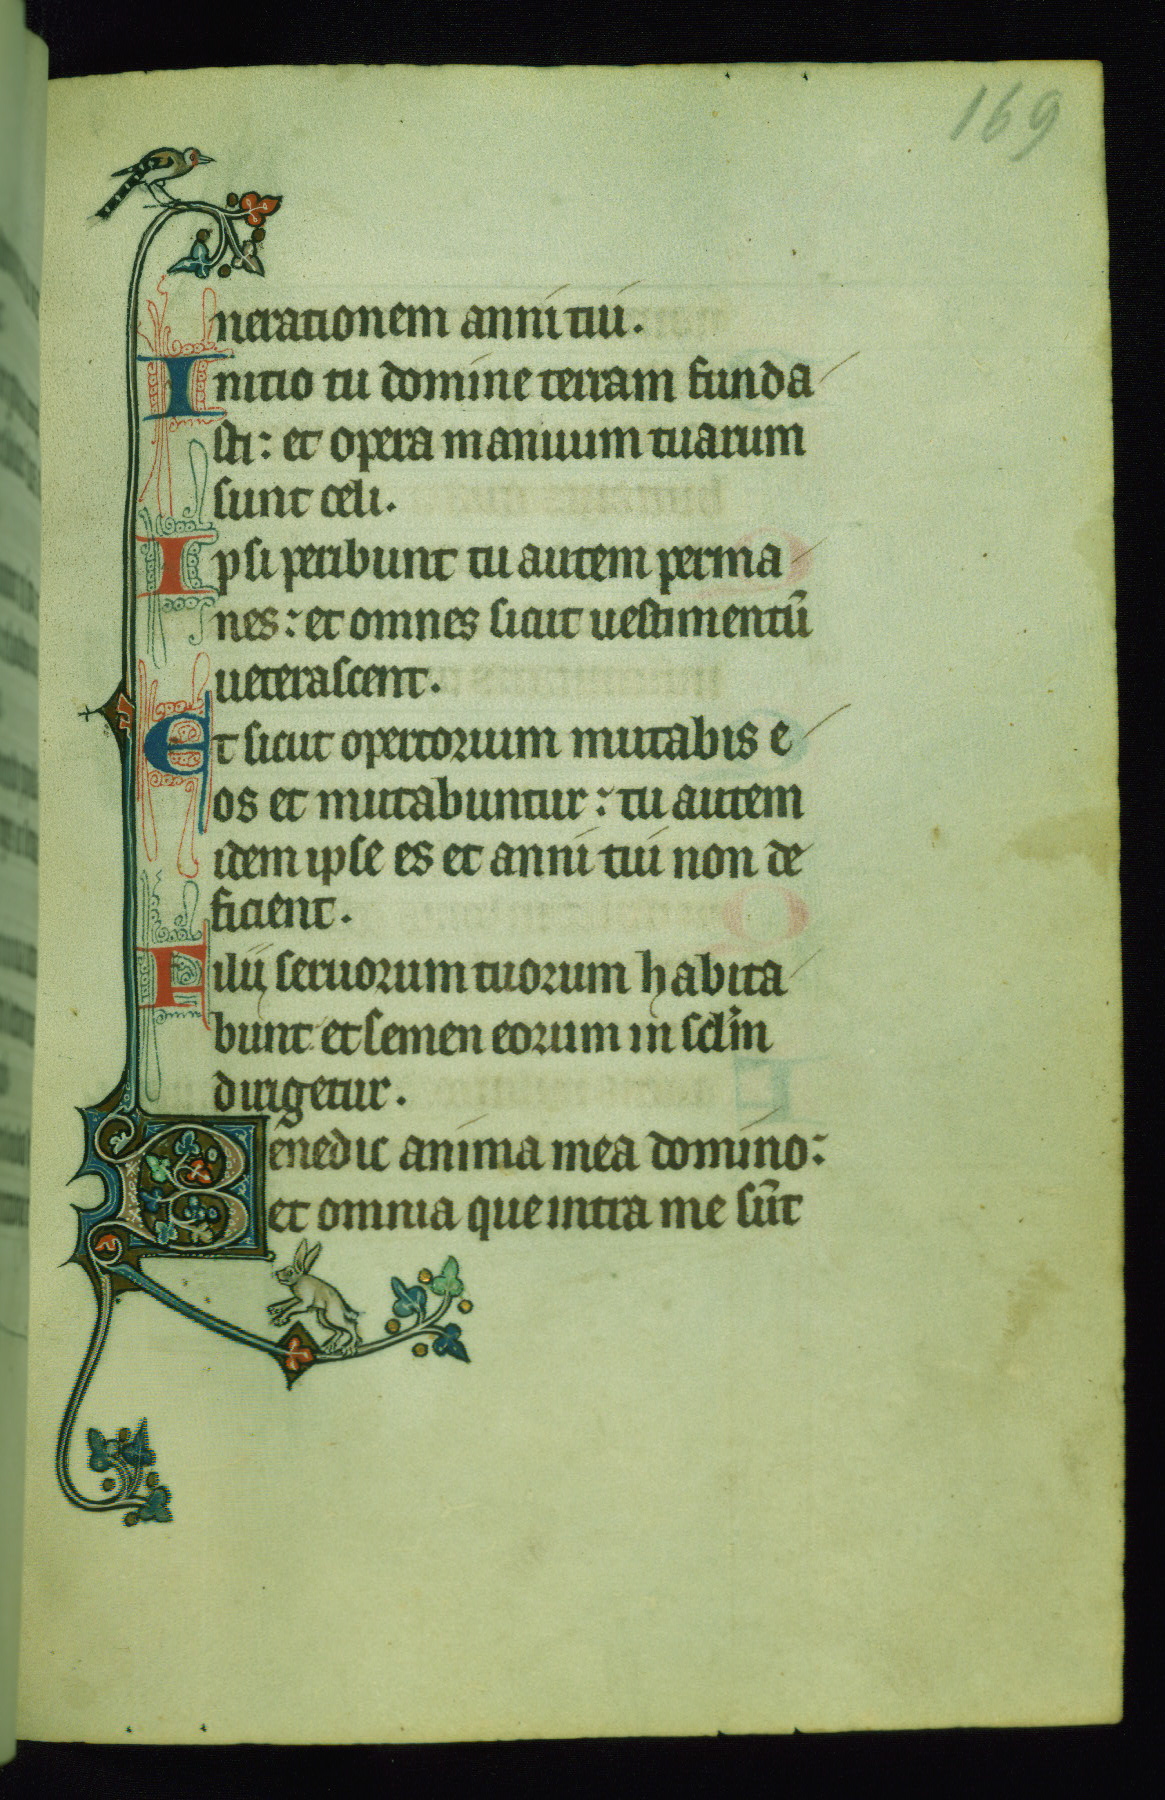 169
nerationem anni tui.
Initio tu domine terram funda
sti: et opera manuum tuarum
sunt celi.
Ipsi peribunt tu autem perma
nes: et omnes sicut uestimentū
ueterascent.
Et sicut opertorium mutabis e
os et mutabuntur: tu autem
idem ipse es et anni tui non de
ficient.
Filii seruorum tuorum habita
bunt et semen eorum in sclm̄
dirigetur.
Benedic anima mea domino:
et omnia que intra me sūt